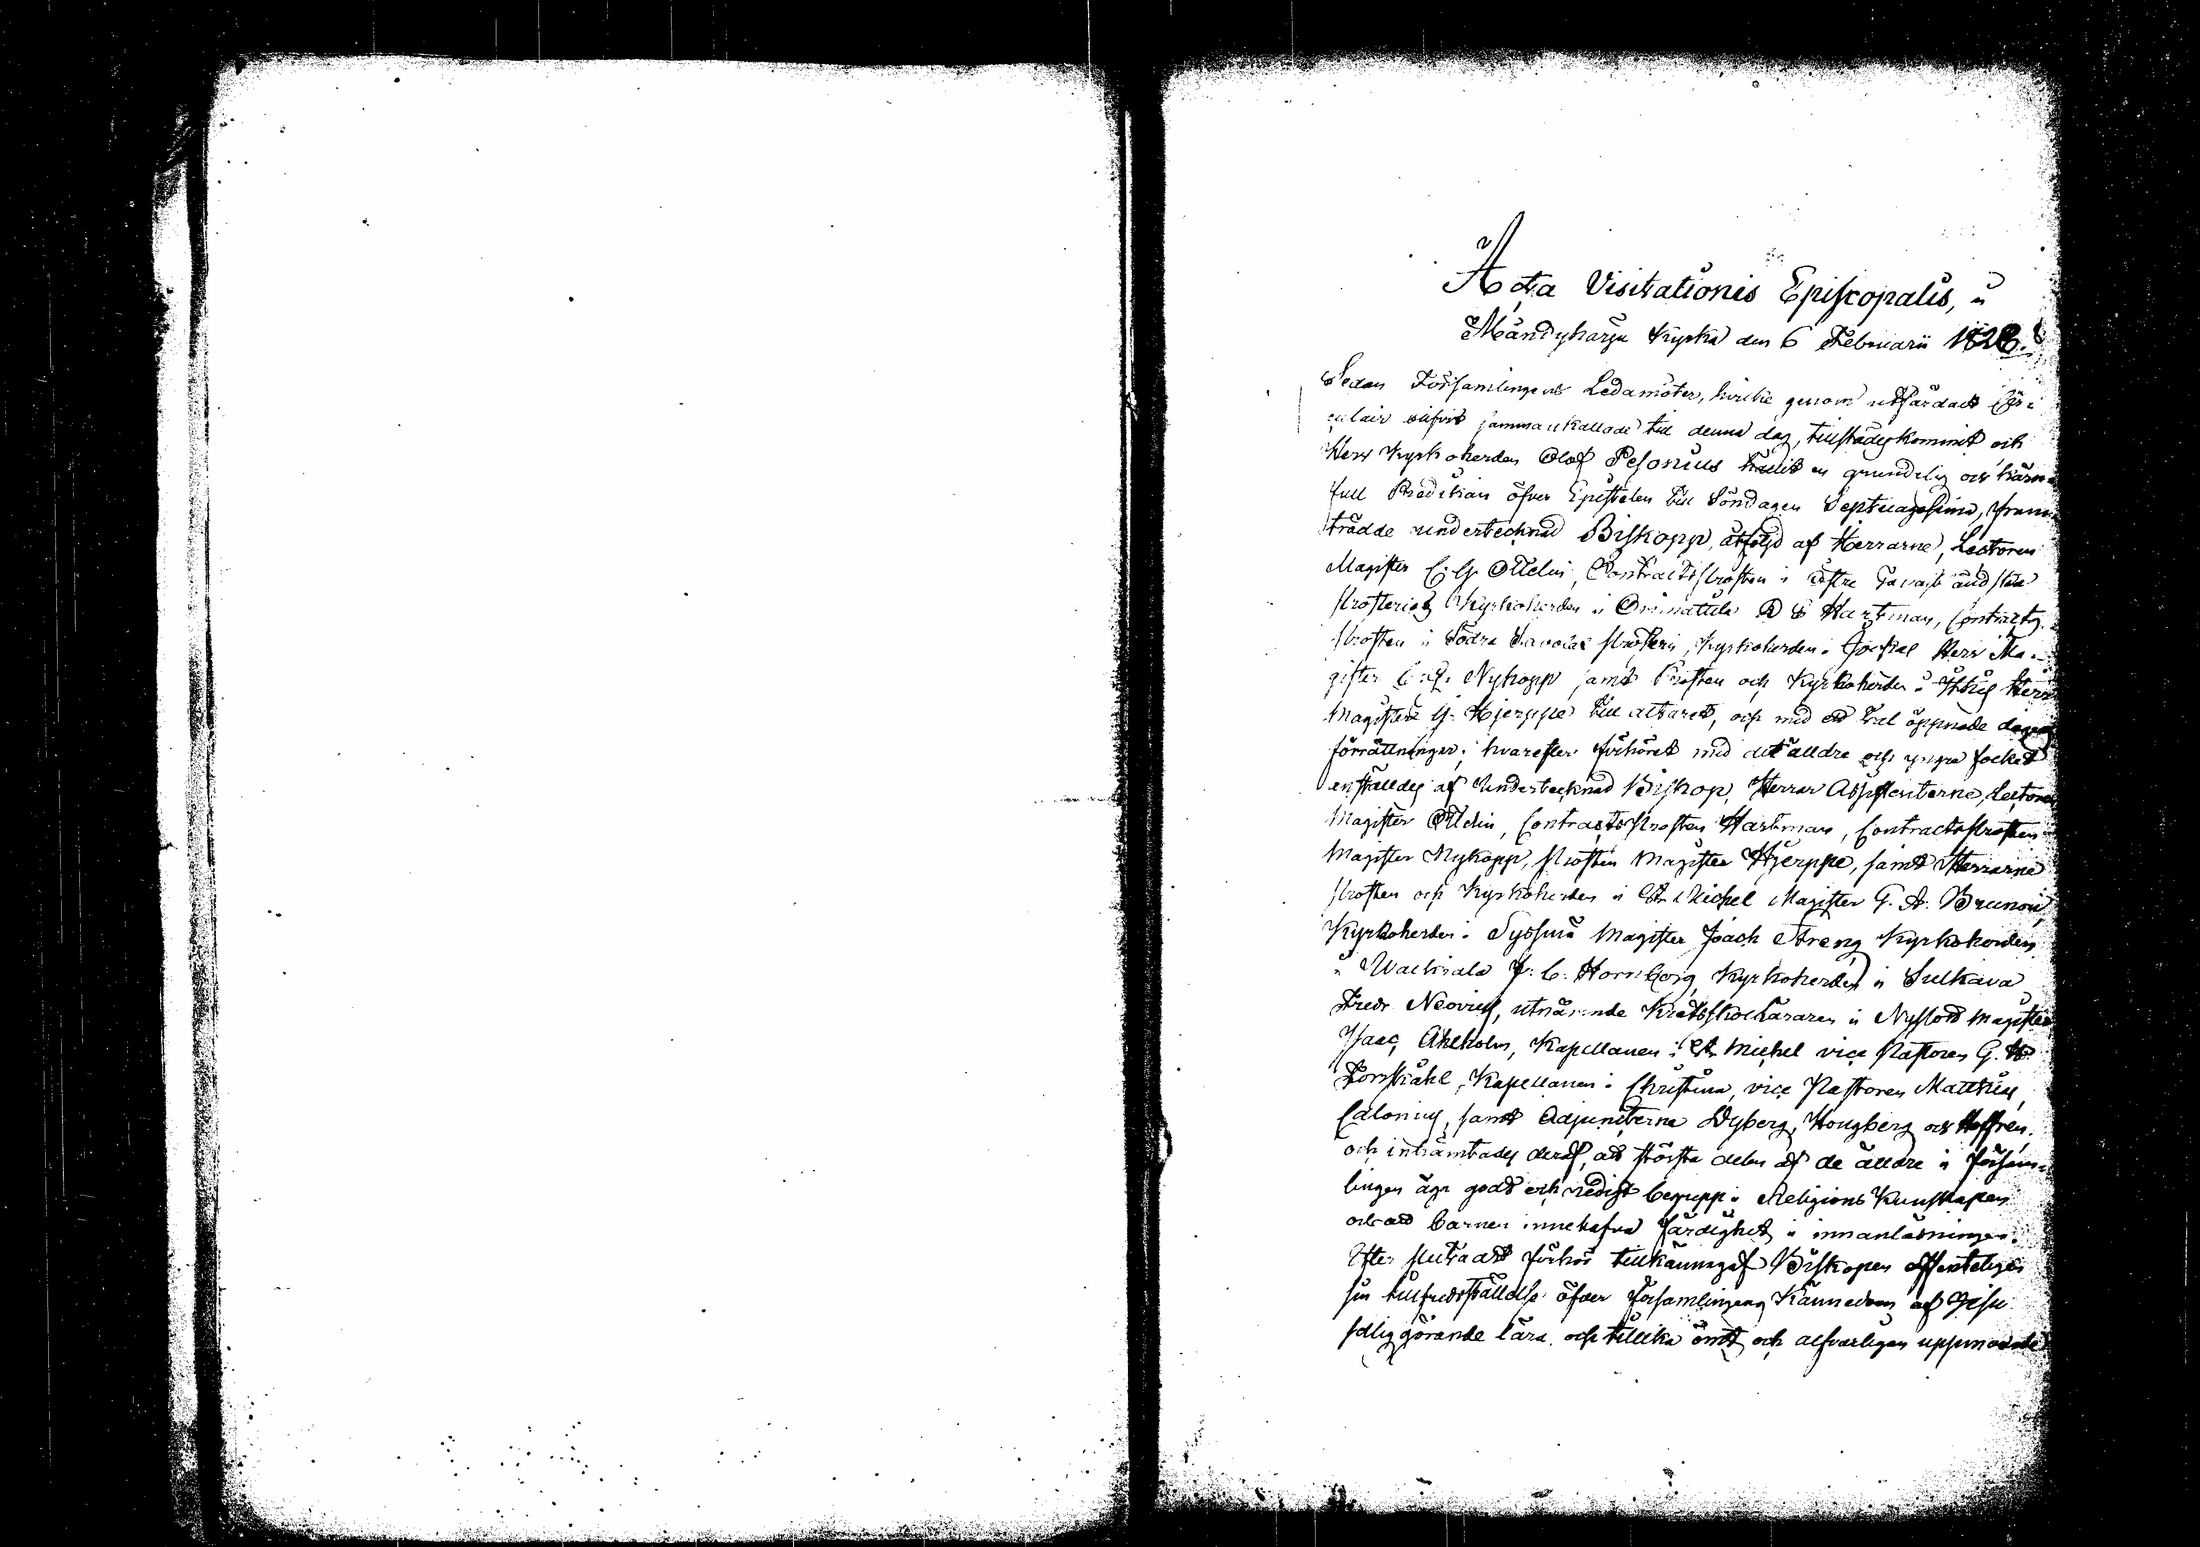 Acta Visitationis Episcopalis, i
Mändyharju Kyrka den 6 Februarii 1828.
Sedan Församlingens Ledamöter, hvilke genom utfärdadt Cir-
culair blifvit sammankallade till denna dag, tillstädeskommit och
Herr Kyrkoherden Olof Pesonius hållit en grundelig och kärn-
full Predikan öfver Epistelen till Söndagen Septuagesima, fram-
trädde undertecknad Biskopp, åtföljd af Herrarne, Lectoren
Magister Ottelin, Contractsprosten i Östra Tavastlands
Prosteriet Kyrkoherden i Orimattila Hartman, Contracts-
prosten i Södra Savolax Prosteri, Kyrkoherden i Jockas Herr Ma-
gister Nykopp samt Prosten och Kyrkoherden i Herr
Magister G. Hjerppe till altaret, och med ett tal öppnade dagens
förrättningar; hvarefter förhöret med det äldre och yngre folket
anställdes af Undertecknad Biskop, Herrar Assistenterne, Lectoren
Magister Ottelin, Contractsprosten Hartman, Contractsprosten
Magister Nykopp, Prosten Magister Hjerppe, samt Herrarne
Prosten och Kyrkoherden i St. Michel Magister G. A. Brunou,
Kyrkoherden i Sysmä Magister Joach Streng Kyrkoherden
i Walkiala J. C. Hornborg, Kyrkoherden i Sulkava
Fredr Neovius, utnämnde Kretsskoleläraren i Nyslott Magister
Isaac Ahlholm, Kapellanen i St. Michel vice Pastoren G. H.
Forsskåhl, Kapellanen i Christina, vice Pastoren Matthias
Calonius, samt Adjuncterne Dyberg, Hougberg och Hoffrén.
och inhämtades deraf, att största delen af de äldre i Försam-
lingen äga godt och redigt begrepp i Religions Kunskapen
och att barnen innehafva färdighet i innanläsningen.
Efter slutadt förhör tillkännagaf Biskopen offenteligen
sin tillfredsställelse öfver Församlingens Kännedom af Jesu
saliggörande lära, och tillika ömt och alfvarligen uppmanade